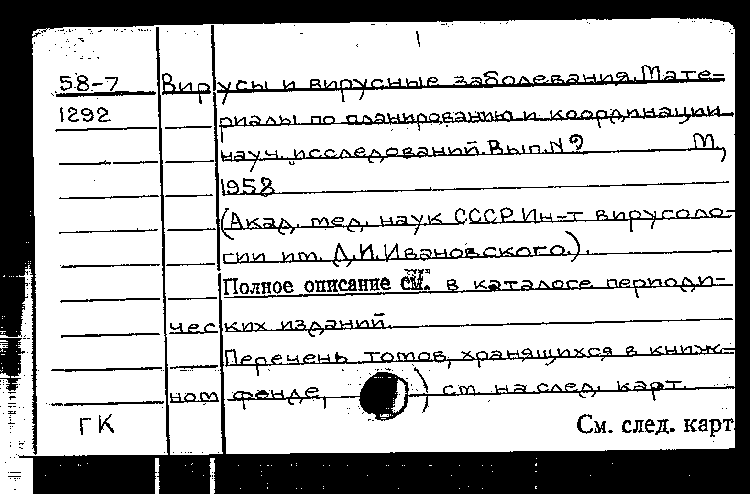 1
58-7 Вирусы и вирусные заболевания. Мате-
1292 риалы по планированию и координации
науч. исследований. Вып. N 2 М,
1958
(Акад. мед. наук СССР Ин-т вирусоло-
гии им. Д.И. Ивановского.).
Полное описание см. в каталоге периоди-
ческих изданий.
Перечень томов, хранящихся в книж-
ном фонде, ) см на след. карт.
ГК См. след. карт